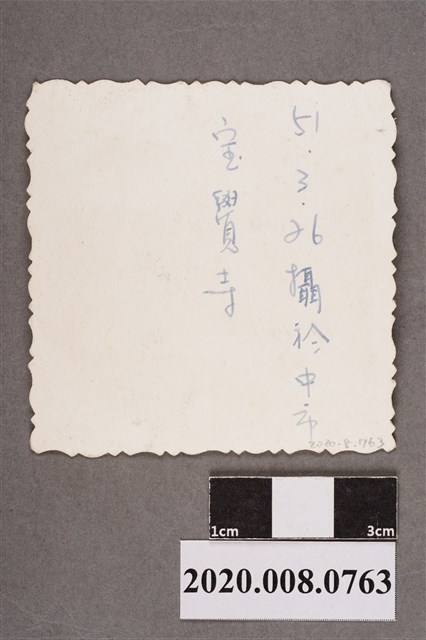 51.3.26攝於中市
宝覺寺
2020.8.763
1cm 3cm
2020.008.0763